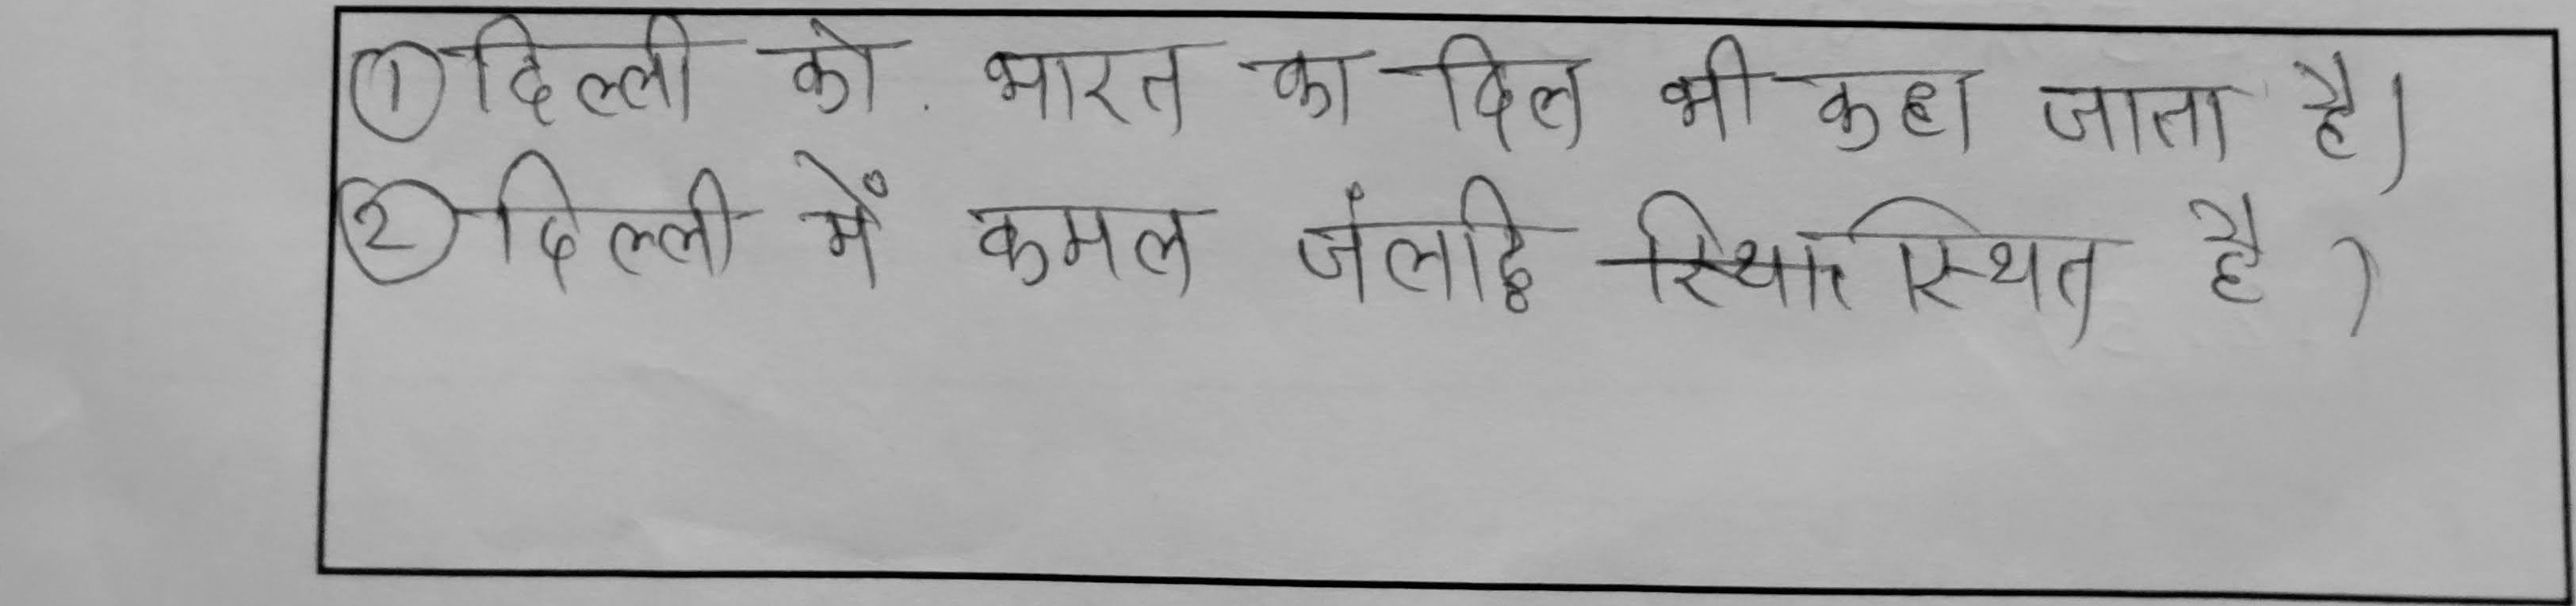 ① दिल्ली को भारत का दिल भी कहा जाता है।
② दिल्ली में कमल स्थित है।